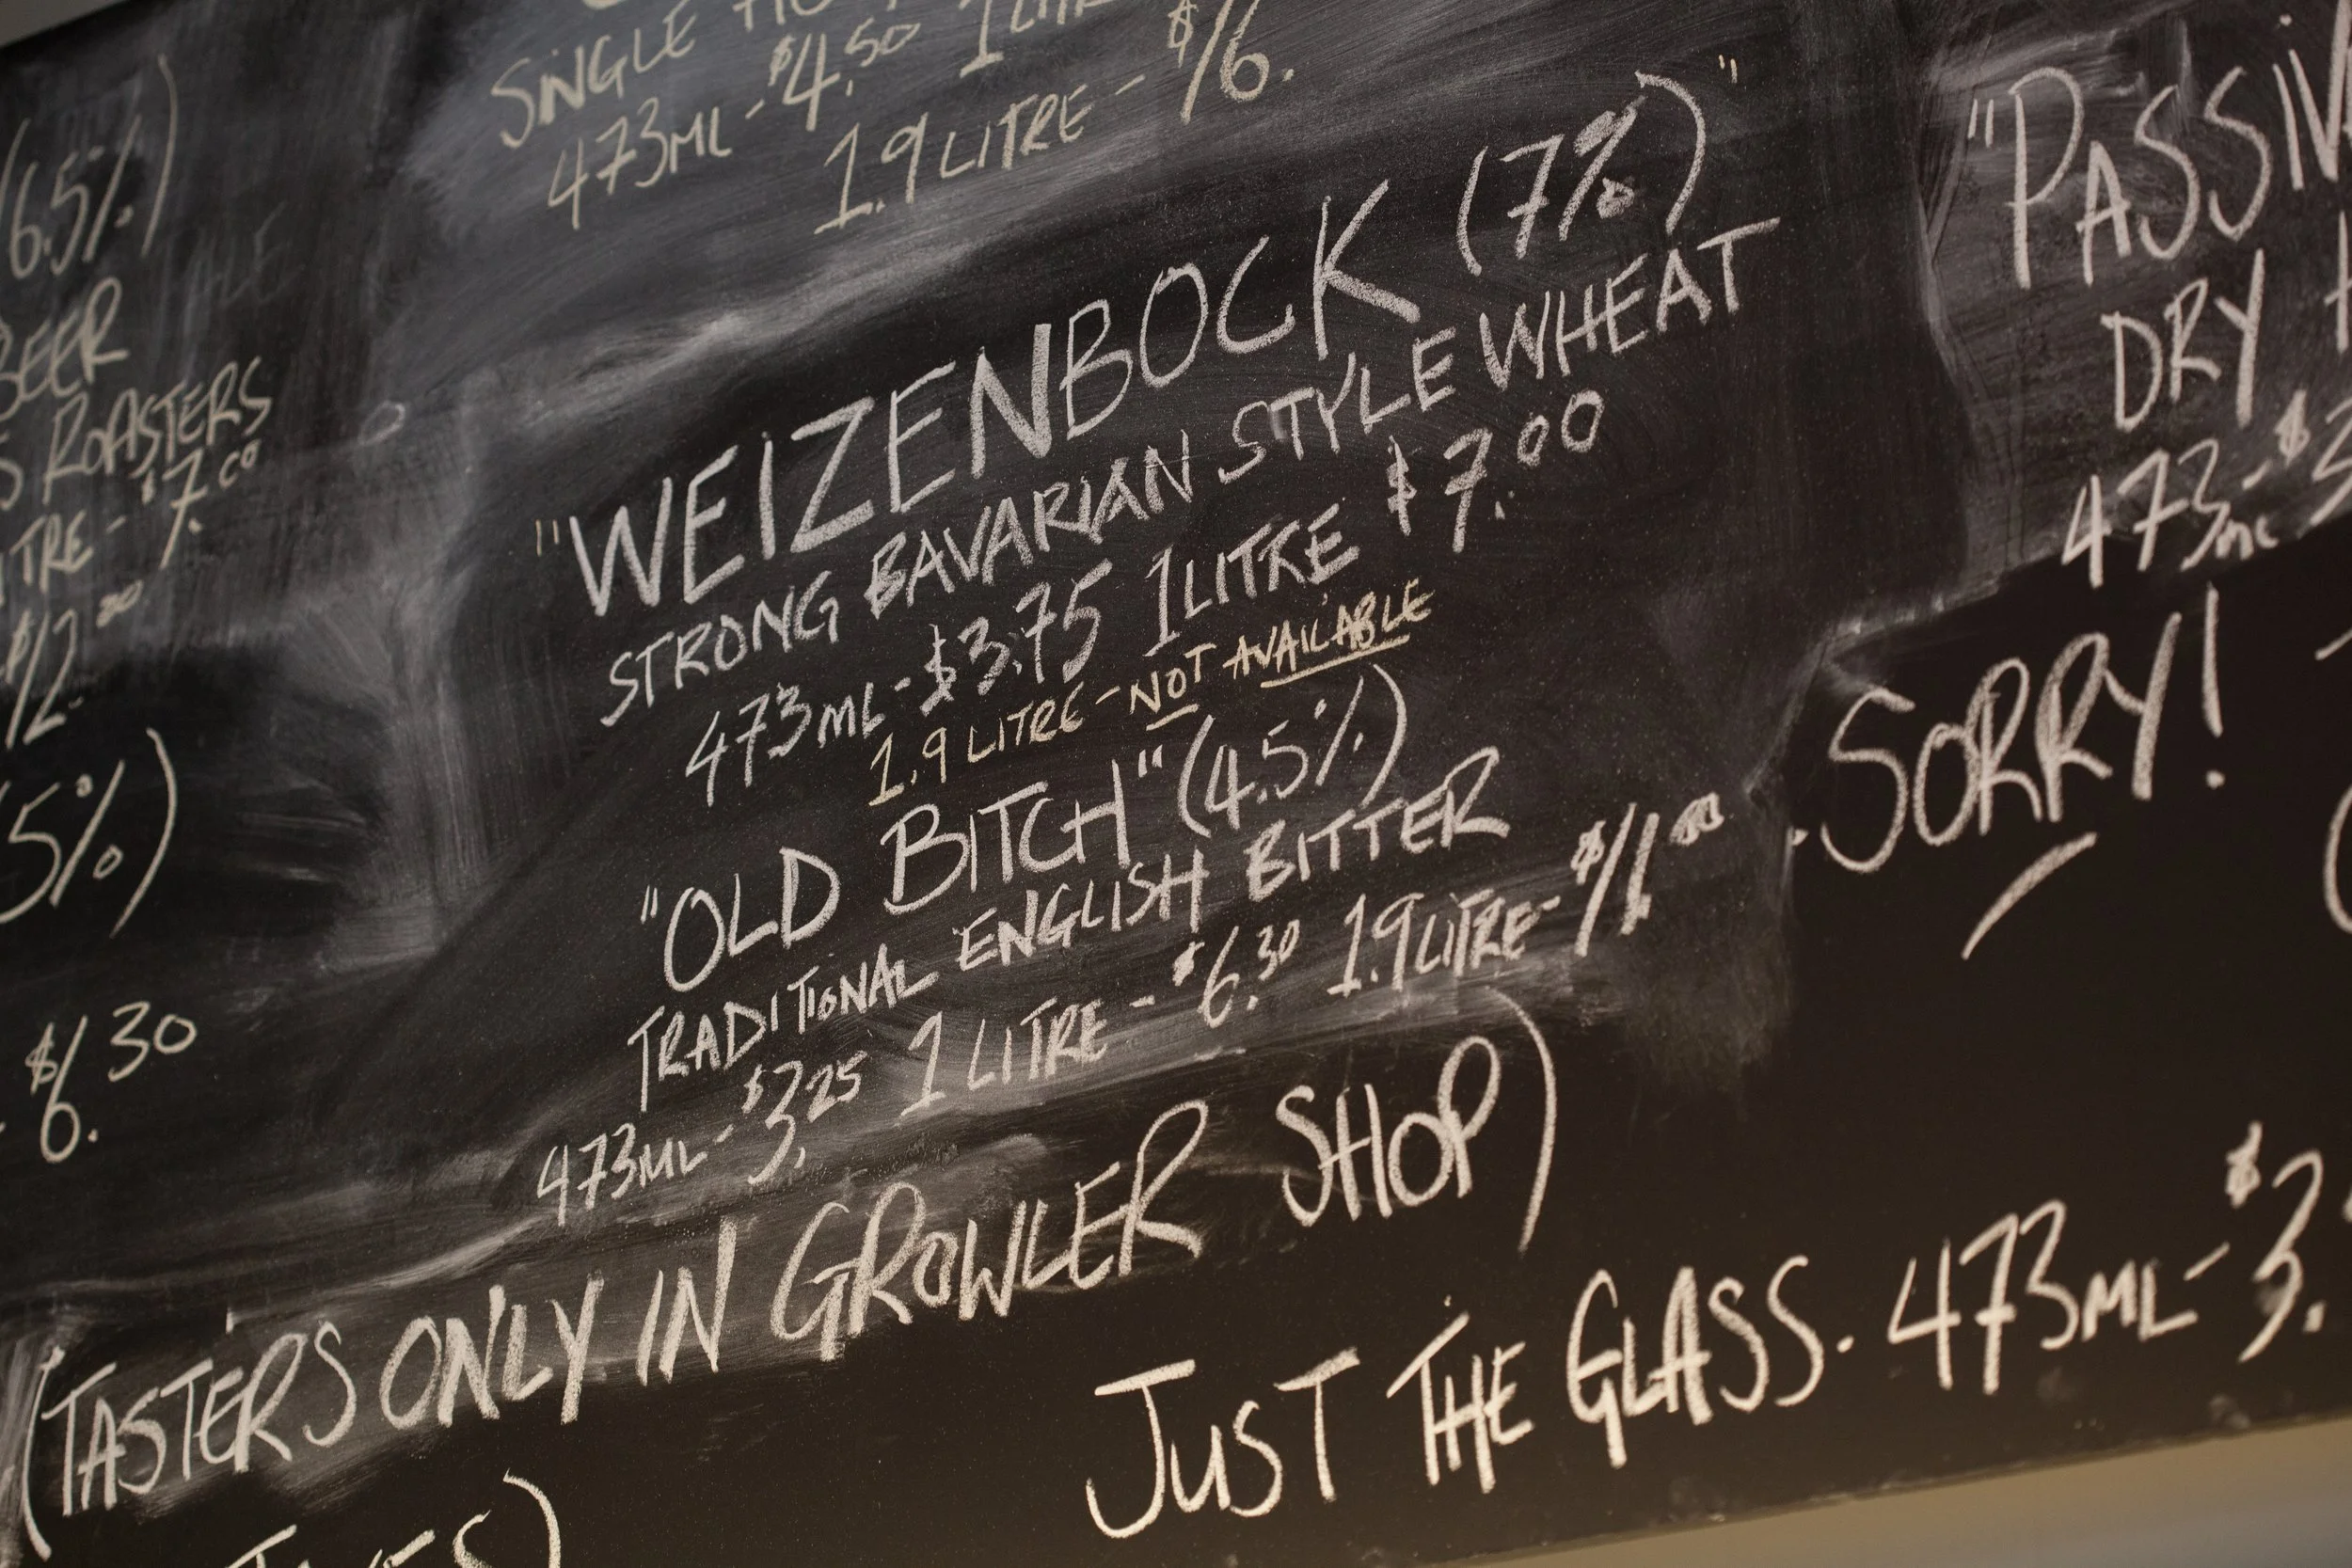 (6.5%)
BEER
ROASTERS
TRE - $7.00
$12.
(5%)
$6.30
SINGLE
473ML - $4.50 1
1.9 LITRE - $16.
"WEIZENBOCK (7%)"
STRONG BAVARIAN STYLE WHEAT
473ML - $3.75 1 LITRE $7.00
1.9 LITRE - NOT AVAILABLE
"OLD BITCH" (4.5%)
TRADITIONAL ENGLISH BITTER
473ML - $3.25 1 LITRE - $6.30 1.9 LITRE - $11.00
(TASTERS ONLY IN GROWLER SHOP)
DRY
473ML - $
SORRY!
JUST THE GLASS. 473ML - $3.